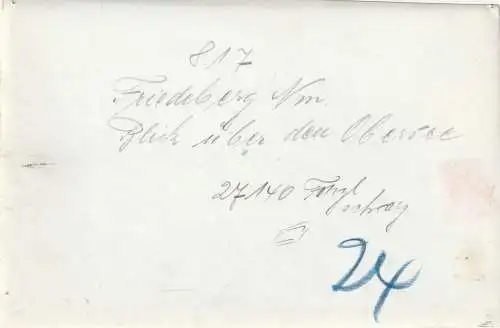 817
Friedeberg Nm.
Blick über den Obersee
27140
24